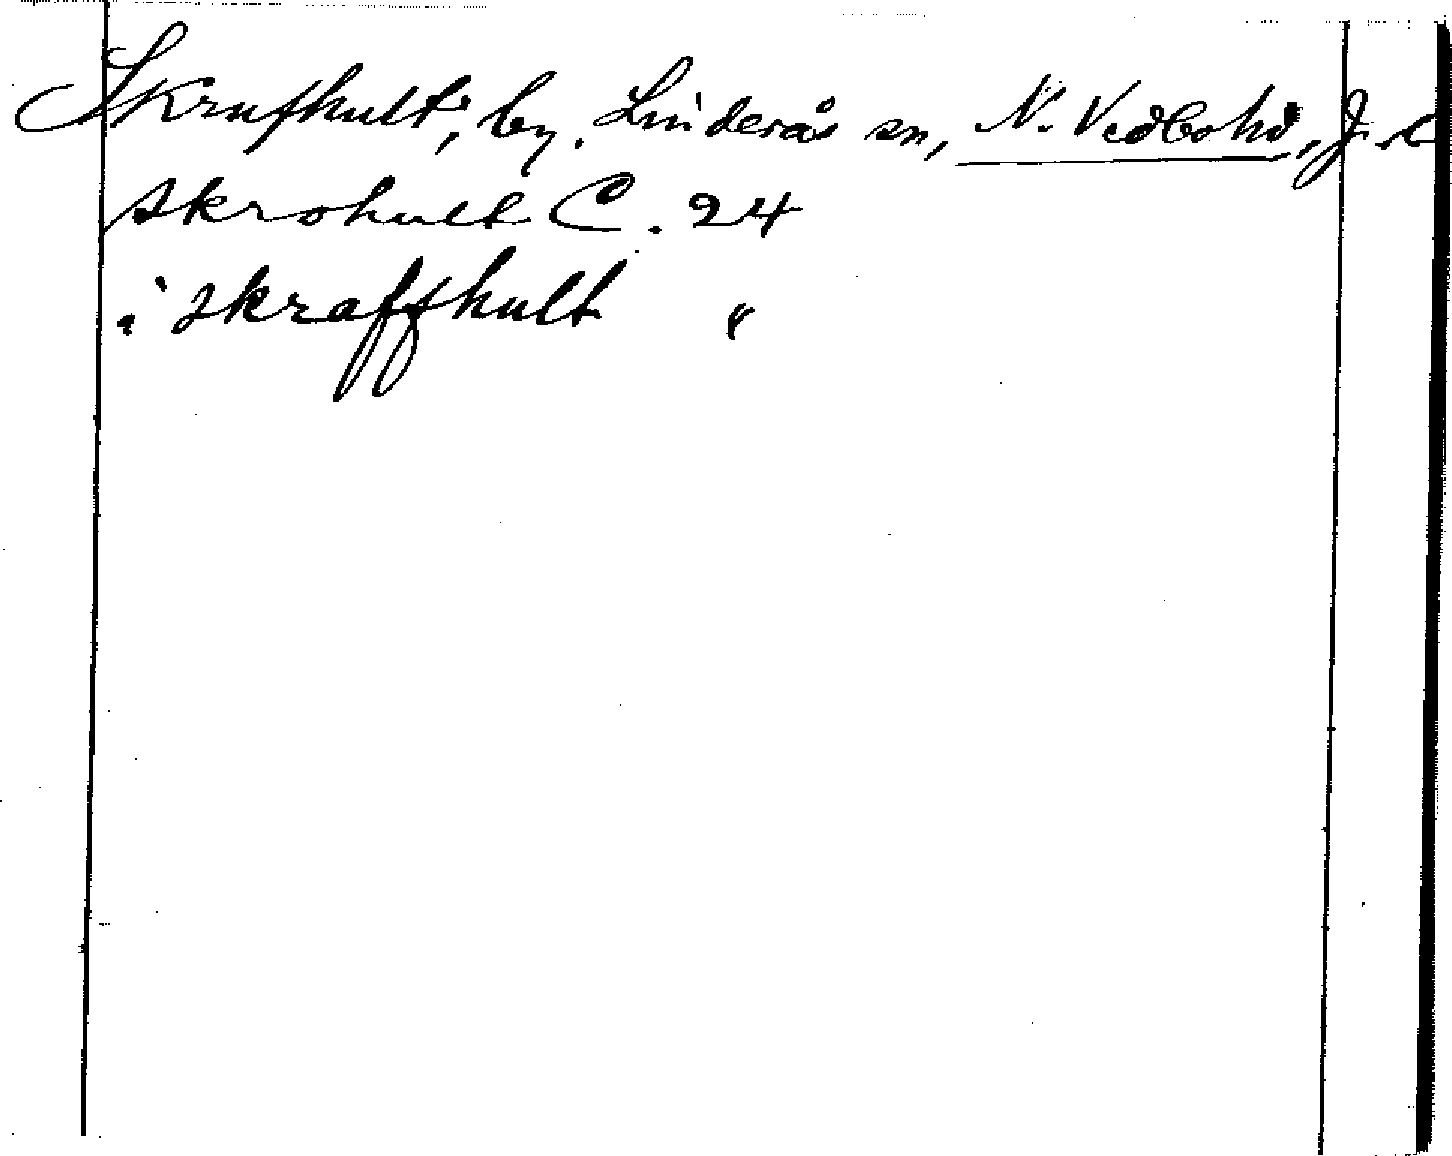 Skrufhult, by. Linderås sn, N. Vedbo hd, J. L
Skrohult C. 24
i skraffhult "